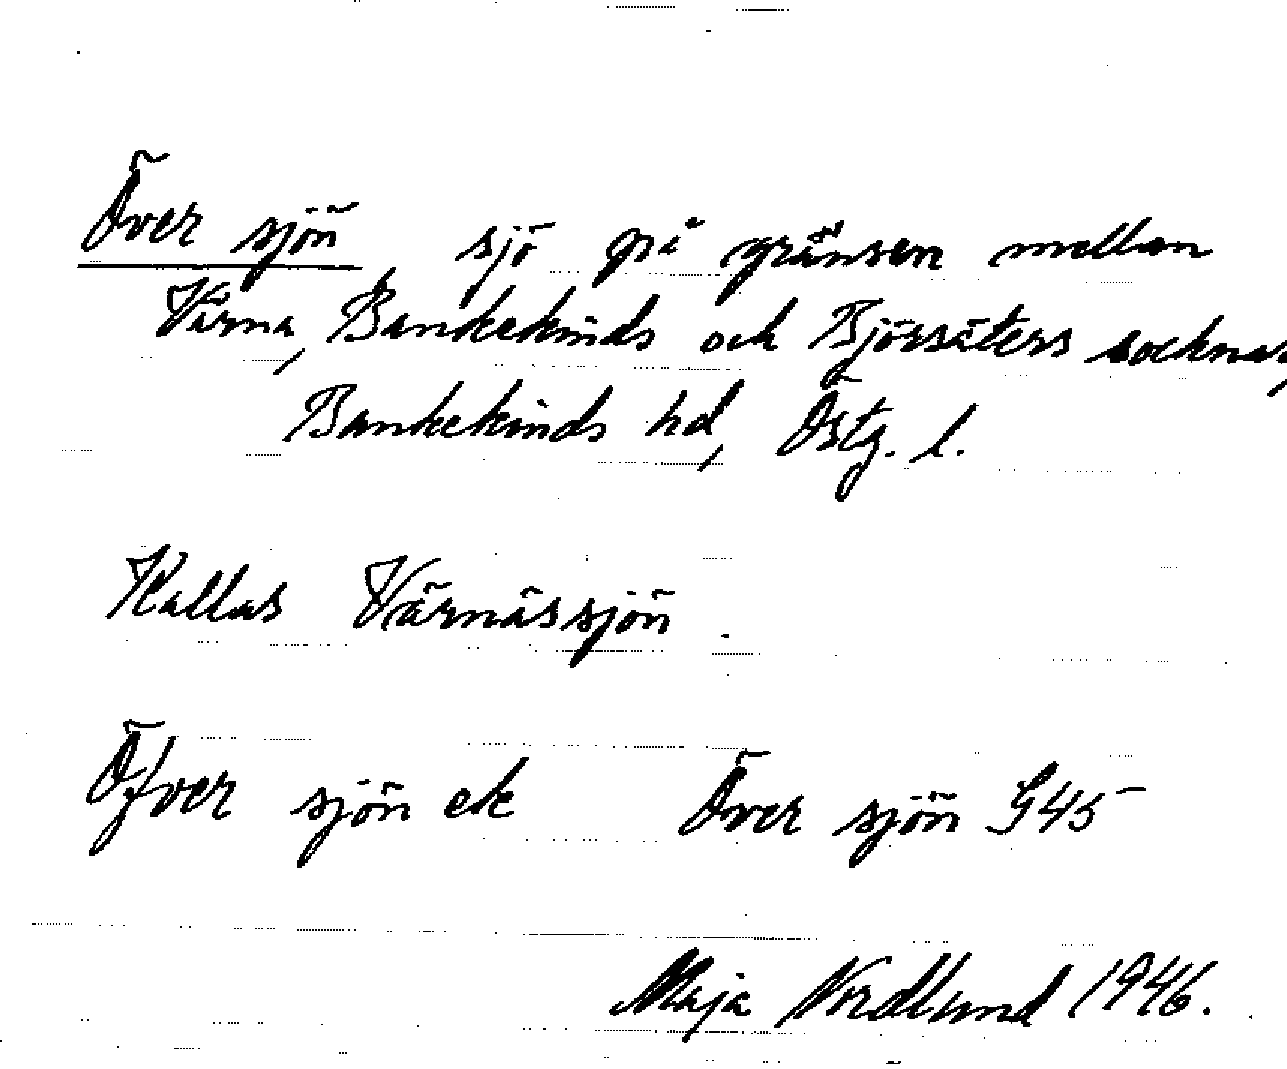 Över sjön sjö på gränsen mellan
Värna, Bankekinds och Björsäters socknar,
Bankekinds hd, Östg. l.
Kallas Värnässjön.
Öfver sjön ek Över sjön G45
Maja Nordlund 1946.